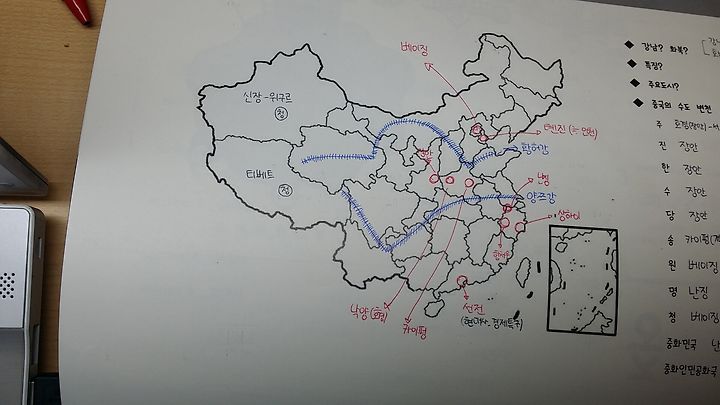 베이징
신장-위구르
청
티베트
톈진 (≒인천)
황허강
시안
난징
양쯔강
상하이
항저우
낙양
카이펑
선전
경제특구)
◆ 강남? 화북?
◆ 특징?
◆ 주요도시?
◆ 중국의 수도 변천
주
진 장안
한 장안
수 장안
당 장안
송 카이펑
원 베이징
명 난징
청 베이징
중화민국 난
중화인민공화국